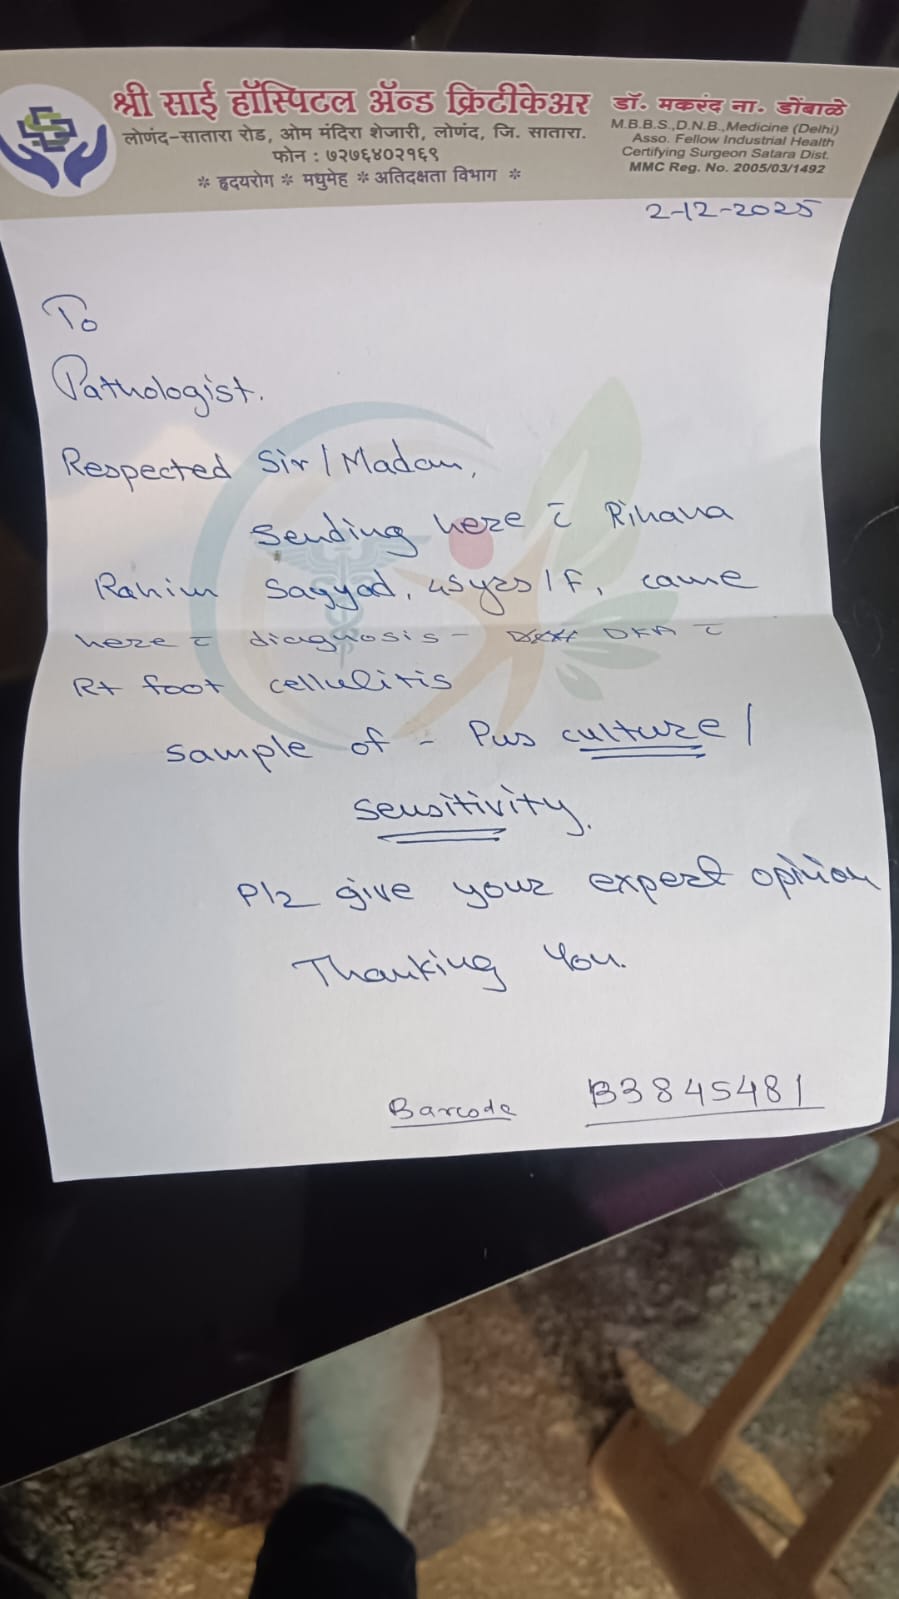 श्री साई हॉस्पिटल ॲन्ड क्रिटीकेअर
लोणंद-सातारा रोड, ओम मंदिरा शेजारी, लोणंद, जि. सातारा.
फोन : ७२७६४०२१६९
* हृदयरोग * मधुमेह * अतिदक्षता विभाग *
डॉ. मकरंद ना. डोंबाळे
M.B.B.S.,D.N.B.,Medicine (Delhi)
Asso. Fellow Industrial Health
Certifying Surgeon Satara Dist.
MMC Reg. No. 2005/03/1492
2-12-2025
To
Pathologist.
Respected Sir/Madam,
Sending here c̄ Rihana
Rahim Sayyad, 45yrs/F, came
here c̄ diagnosis - DKA c̄
Rt foot cellulitis
Sample of - Pus culture/
sensitivity.
Plz give your expert opinion
Thanking You.
Barcode B3845481